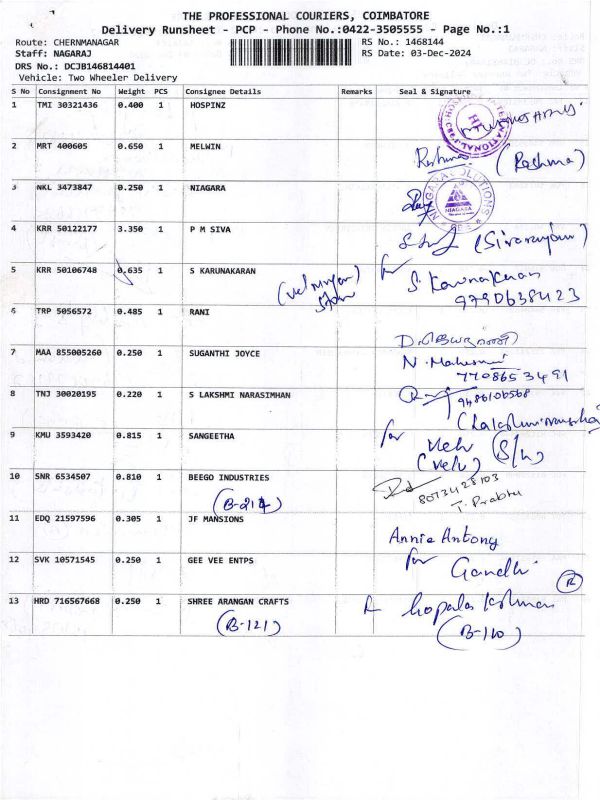 THE PROFESSIONAL COURIERS, COIMBATORE
Delivery Runsheet - PCP - Phone No.:0422-3505555 - Page No.:1
Route: CHERNMANAGAR RS No.: 1468144
Staff: NAGARAJ RS Date: 03-Dec-2024
DRS No.: DCJB146814401
Vehicle: Two Wheeler Delivery
S No Consignment No Weight PCS Consignee Details Remarks Seal & Signature
1 TMI 30321436 0.400 1 HOSPINZ
2 MRT 400605 0.650 1 MELWIN
Reshma (Reshma)
3 NKL 3473847 0.250 1 NIAGARA
NIAGARA SOLUTIONS
NIAGARA
4 KRR 50122177 3.350 1 P M SIVA
5 KRR 50106748 0.635 1 S KARUNAKARAN
for S Karunakaran
9790638423
6 TRP 5056572 0.485 1 RANI
7 MAA 855005260 0.250 1 SUGANTHI JOYCE
N. Maheswari
7708653491
8 TNJ 30020195 0.220 1 S LAKSHMI NARASIMHAN
9486106568
9 KMU 3593420 0.815 1 SANGEETHA
for Velu
(velu) (S/w)
10 SNR 6534507 0.810 1 BEEGO INDUSTRIES
(B-214)
8073428103
T. Prabhu
11 EDQ 21597596 0.305 1 JF MANSIONS
Annie Antony
12 SVK 10571545 0.250 1 GEE VEE ENTPS
for Gandhi
R
13 HRD 716567668 0.250 1 SHREE ARANGAN CRAFTS
(B-121)
Gopalakrishnan
(B-110)